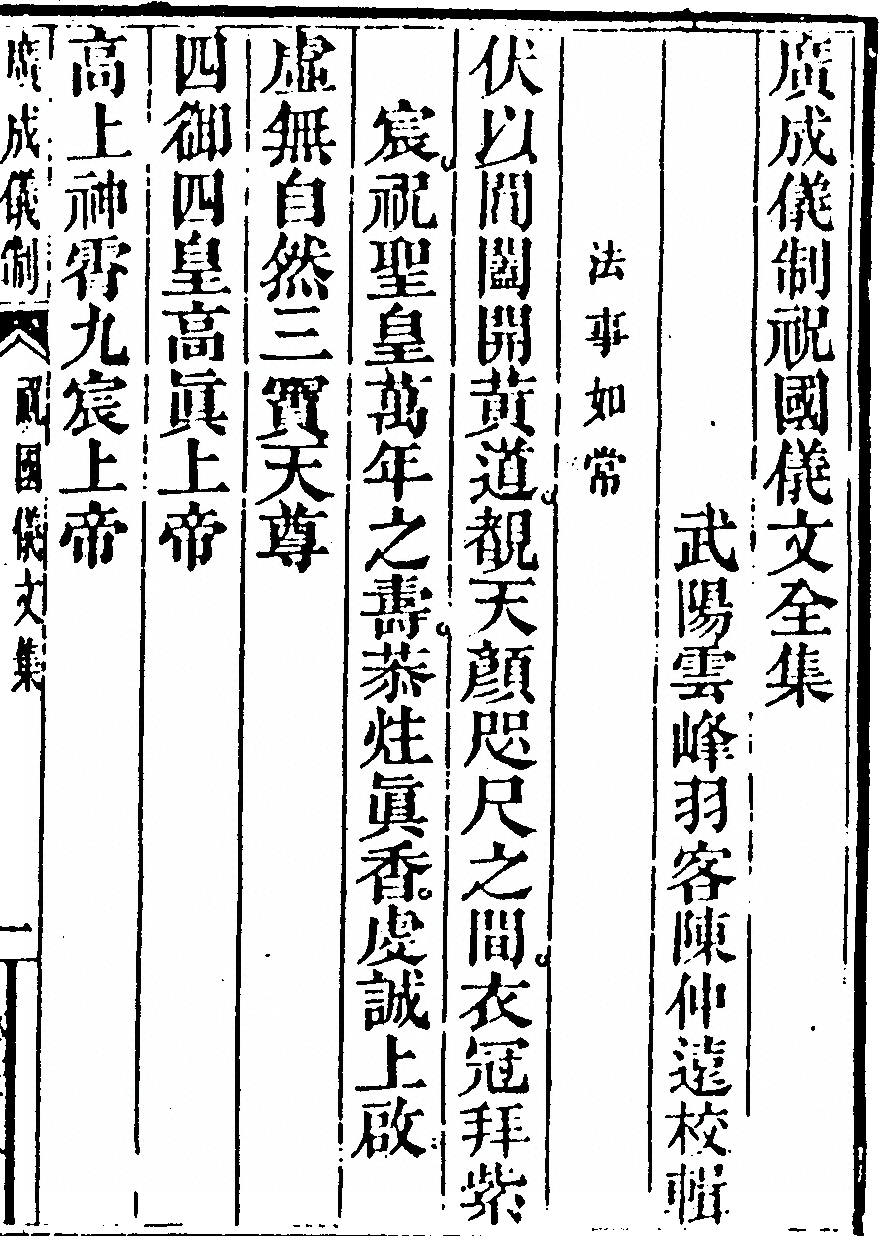 廣成儀制祝國儀文全集
武陽雲峰羽客陳仲遠校輯
法事如常
伏以閶闔開黃道。覩天顏咫尺之間。衣冠拜紫
宸。祝聖皇萬年之壽。恭炷眞香。虔誠上啟
虛無自然三寶天尊
四御四皇高眞上帝
高上神霄九宸上帝
廣成儀制 祝國儀文集 一